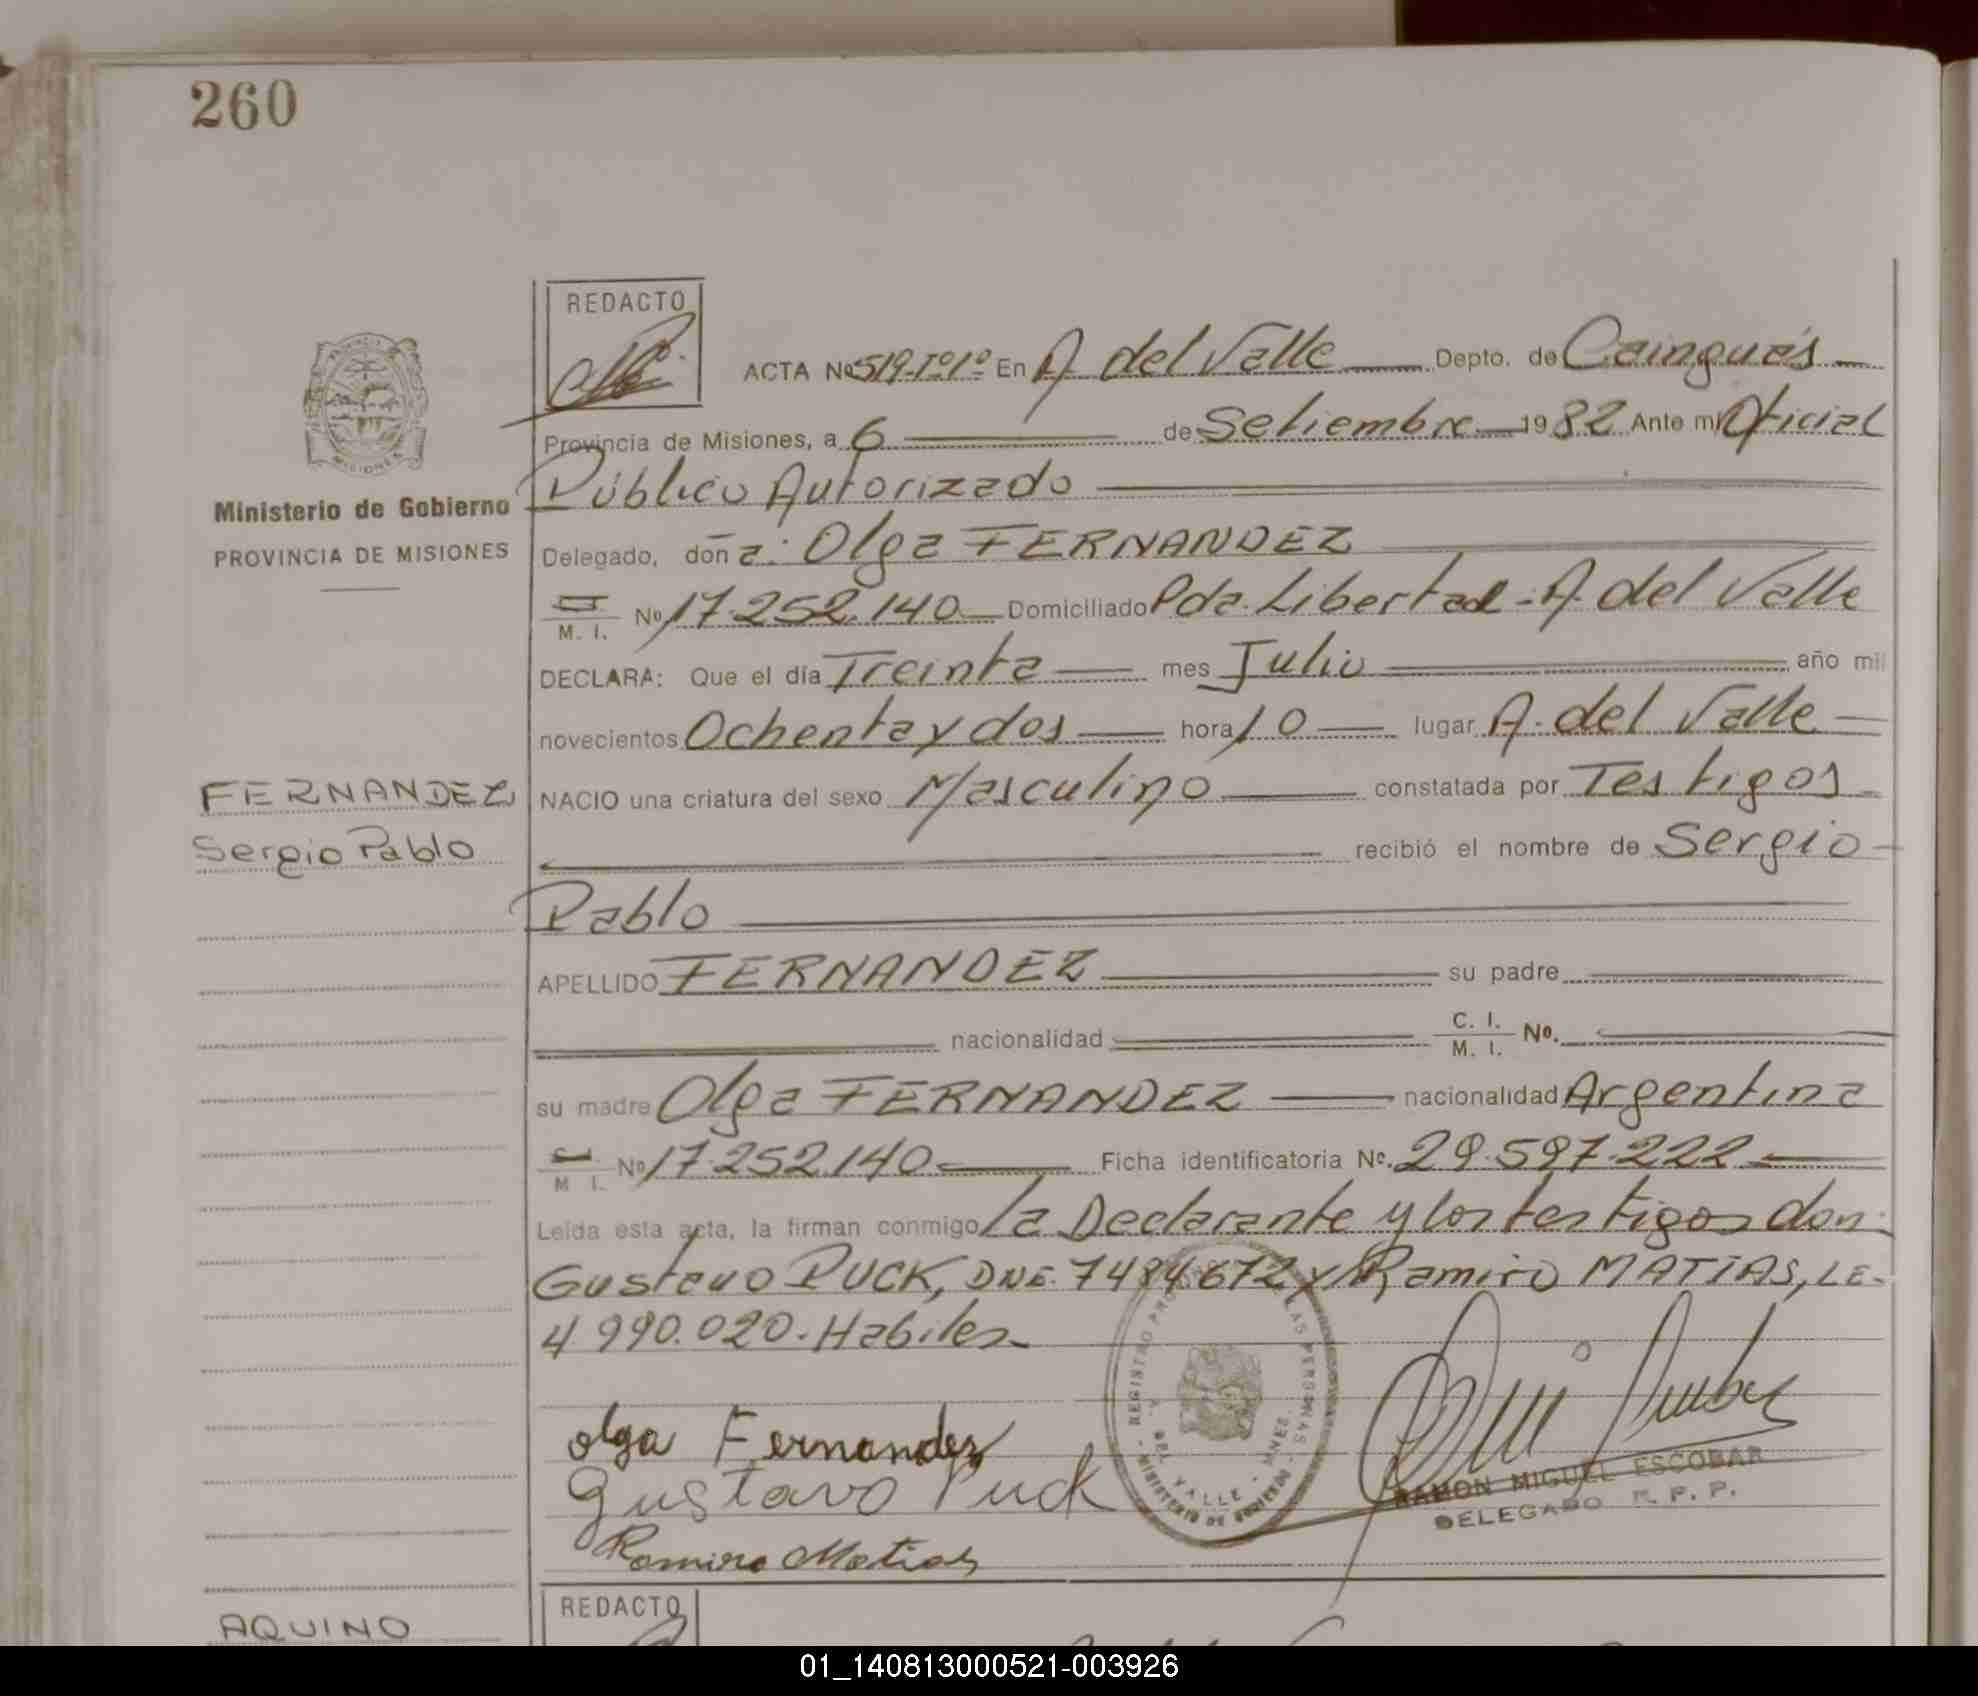 260
REDACTO
ACTA Nº 519-Tº1º En A. del Valle Depto. de Cainguás
Provincia de Misiones, a 6 de Setiembre 1982 Ante mí Oficial
Público Autorizado
Ministerio de Gobierno
PROVINCIA DE MISIONES
Delegado, doña: Olga FERNANDEZ
M. I. Nº 17.252.140 Domiciliado Pda. Libertad - A. del Valle
DECLARA: Que el día Treinta mes Julio año mil
novecientos Ochenta y dos hora 10 lugar A. del Valle
FERNANDEZ
Sergio Pablo
NACIO una criatura del sexo Masculino constatada por Testigos
recibió el nombre de Sergio
Pablo
APELLIDO FERNANDEZ su padre
nacionalidad C. I. M. I. Nº.
su madre Olga FERNANDEZ nacionalidad Argentina
M I. Nº 17.252.140 Ficha identificatoria Nº. 29.597.222
Leída esta acta, la firman conmigo la Declarante y los testigos don:
Gustavo PUCK, DNE. 7484672 y Ramiro MATIAS, LE-
4990.020. Habiles
olga Fernandez
Gustavo Puck
Ramiro Matias
REGISTRO LAS PERSONAS
A. DEL VALLE - MNES.
MINISTERIO DE GOBIERNO
RAMON MIGUEL ESCOBAR
DELEGADO R. P. P.
REDACTO
AQUINO
01_140813000521-003926